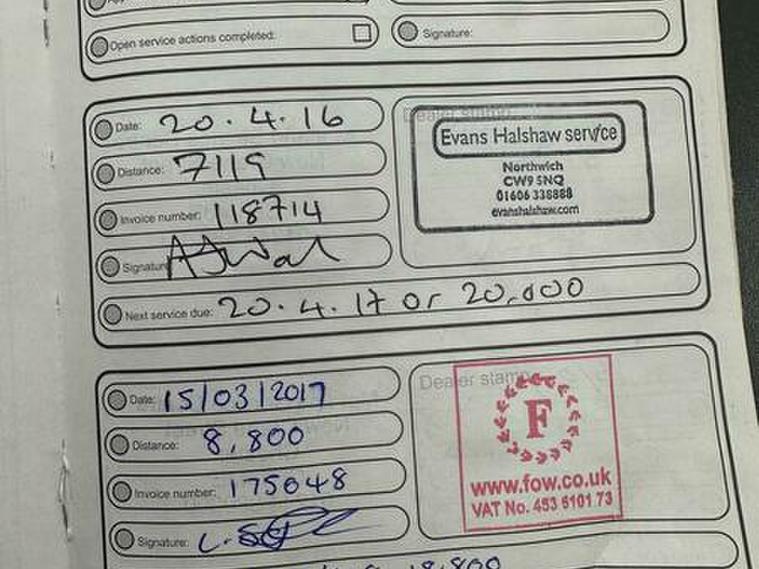 Open service actions completed:
Signature:
Date: 20.4.16
Distance: 7119
Invoice number: 118714
Signature
Next service due: 20.4.17 or 20,000
Dealer stamp
Evans Halshaw service
Northwich
CW9 5NQ
01606 338888
evanshalshaw.com
Date: 15/03/2017
Distance: 8,800
Invoice number: 175048
Signature:
Dealer stamp
F
www.fow.co.uk
VAT No. 453 6101 73
18,800